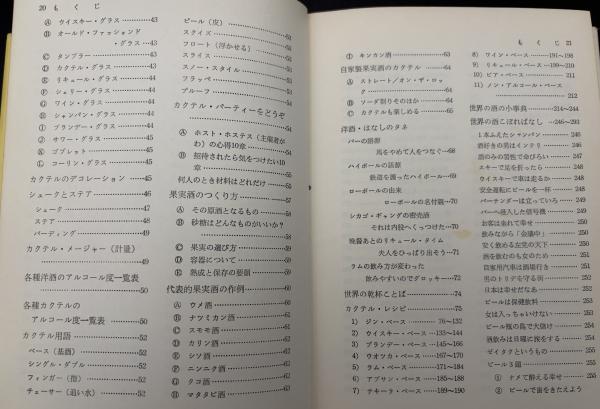 20 も く じ
Ⓐ ウイスキー・グラス……43
Ⓑ オールド・ファッションド
・グラス…43
Ⓒ タンブラー……43
Ⓓ カクテル・グラス……43
Ⓔ リキュール・グラス……43
Ⓕ シェリー・グラス……43
Ⓖ ワイン・グラス……43
Ⓗ シャンパン・グラス……43
Ⓘ ブランデー・グラス……43
Ⓙ サワー・グラス……43
Ⓚ ゴブレット……43
Ⓛ コーリン・グラス……43
カクテルのデコレーション……45
シェークとステア……46
シェーク……47
ステア……48
バーディング……49
カクテル・メージャー(計量)
……49
各種洋酒のアルコール度一覧表
……50
各種カクテルの
アルコール度一覧表……50
カクテル用語……52
ベース(基酒)……52
シングル・ダブル……52
フィンガー(指)……52
チェーサー(追い水)……52
ピール(皮)……
スクイズ……51
フロート(浮かせる)……
スライス……
スノー・スタイル……
フラッペ……54
プルーフ……54
カクテル・パーティーをどうぞ
……54
Ⓐ ホスト・ホステス(主催者が
わ)の心得10章……
Ⓑ 招待されたら気をつけたい10
章……55
何人のとき材料はどれだけ……
果実酒のつくり方……57
Ⓐ その原酒となるもの……58
Ⓑ 砂糖はどんなものがいいか?
……58
Ⓒ 果実の選び方……59
Ⓓ 容器について……59
Ⓔ 熟成と保存の要領……59
代表的果実酒の作例……60
Ⓐ ウメ酒……60
Ⓑ ナツミカン酒……61
Ⓒ スモモ酒……61
Ⓓ カリン酒……62
Ⓔ シソ酒……62
Ⓕ ニンニク酒……62
Ⓖ クコ酒……62
Ⓗ マタタビ酒……63
も く じ 21
Ⓘ キンカン酒……63
自家製果実酒のカクテル……64
Ⓐ ストレート/オン・ザ・ロッ
ク……64
Ⓑ ソーダ割りそのほか……64
Ⓒ カクテルも楽しめる……65
洋酒・はなしのタネ
バーの語源
馬をやめて人をつなぐ…68
ハイボールの語源
鉄道を護ったハイボール…69
ローボールの由来
ローボールの名付親…70
シカゴ・ギャングの密売酒
それは内役へくっつけた…70
晩餐あとのリキュール・タイム
夫人をひっぱりそう…71
ラムの飲み方が変わった
飲みやすいのでダロッキー…72
世界の乾杯ことば……74
カクテル・レシピ……75
1) ジン・ベース……76〜132
2) ウイスキー・ベース……133〜144
3) ブランデー・ベース……145〜166
4) ウオツカ・ベース……167〜170
5) ラム・ベース……171〜184
6) アブサン・ベース……185〜188
7) テキーラ・ベース……189〜190
8) ワイン・ベース……191〜198
9) リキュール・ベース……199〜210
10) ビア・ベース……212
11) ノン・アルコール・ベース
……212
世界の酒の小事典……214〜244
世界の酒こぼればなし…246〜293
1本ふえたシャンパン……246
酒好きの男はインテリ……246
酒のみの男性で命びろい……246
スキーで足を折ったら……246
ウイスキーで車は走るか……246
安全運転にビールを一杯……248
バーテンダーは立っている……248
バーへ潜入した信号機……248
お客は乗れて幸せ……249
飲みながら「会議中」……249
安く飲める左党の天下……249
酒を飲むのも女のため……250
自家用汽車は酒場行き……250
男のトリデを守る街……250
日本は幸せだなあ……250
ビールは保健飲料……251
女は入っちゃいけない……251
ビール瓶の島で大儲け……251
酒飲みは日曜に按をする……254
ゼイタクというもの……254
ビール3題……255
① ナメて酔える幸せ……255
② ビールで歯をきたえよう